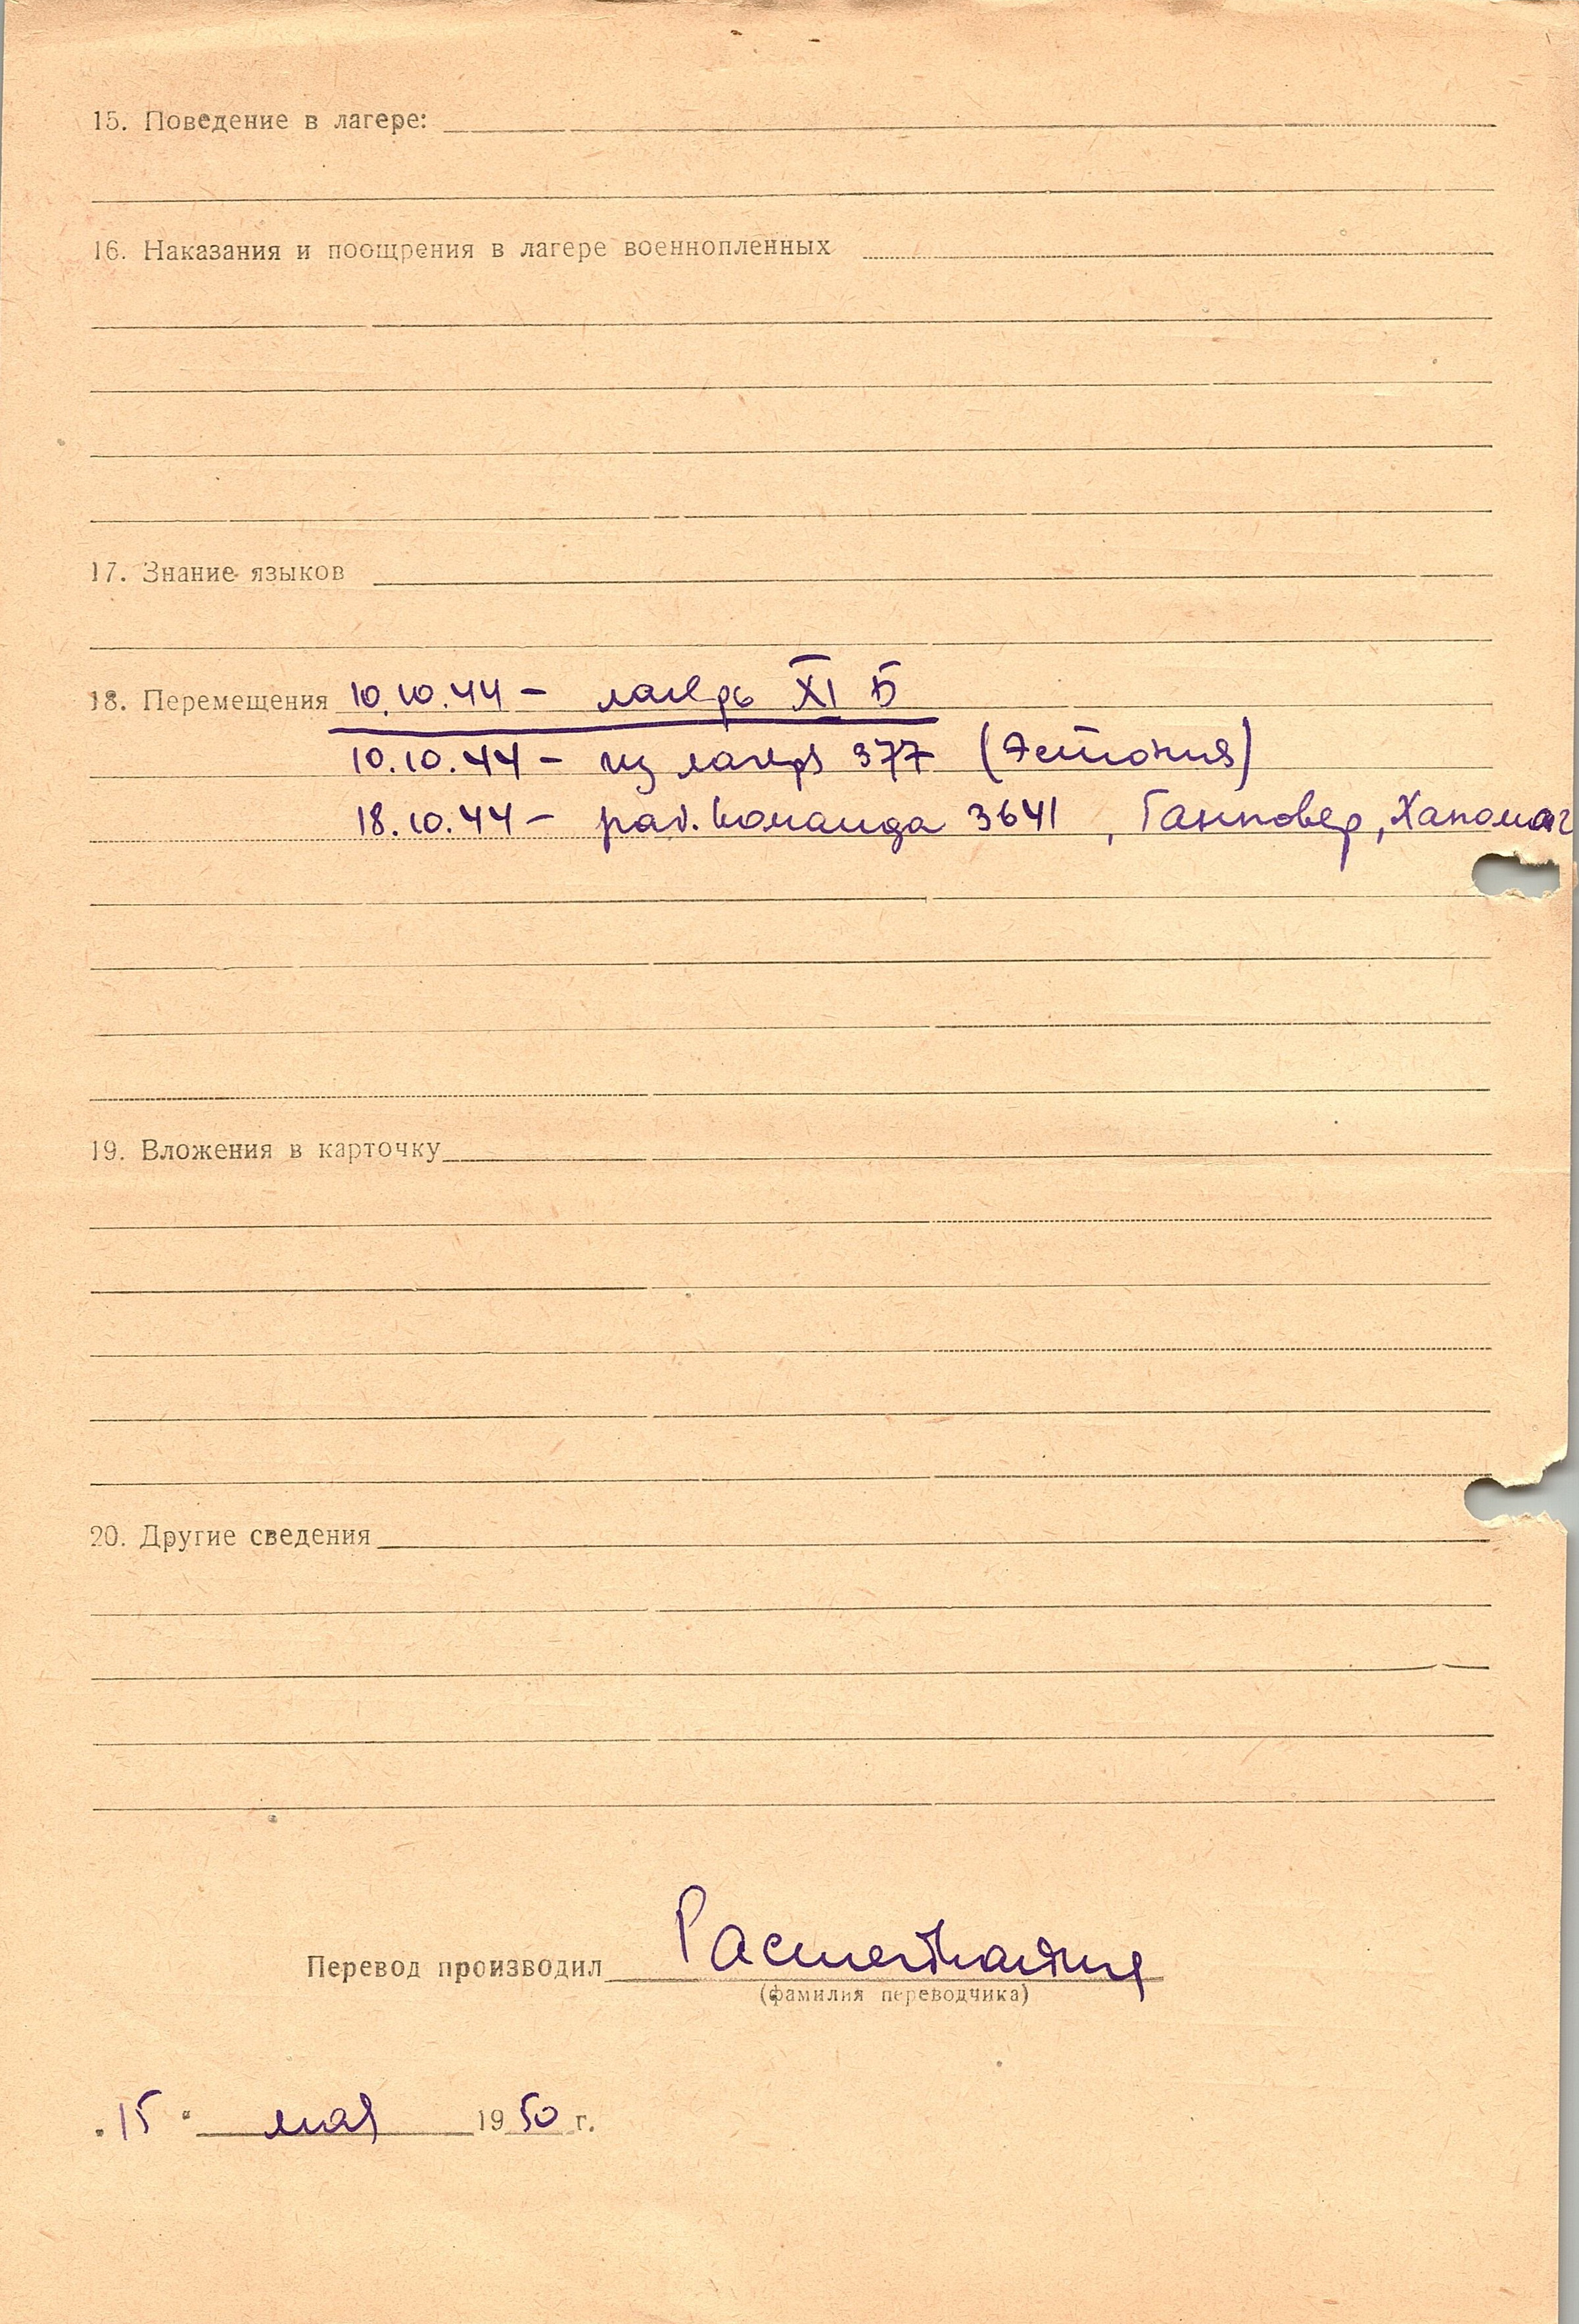 15. Поведение в лагере:
16. Наказания и поощрения в лагере военнопленных
17. Знание языков
18. Перемещения 10.10.44 – лагерь XI Б
10.10.44 – из лагеря 377 (Эстония)
18.10.44 – раб. команда 3641, Ганновер, Ханомаг
19. Вложения в карточку
20. Другие сведения
Перевод производил
(фамилия переводчика)
„15“ мая 1950 г.